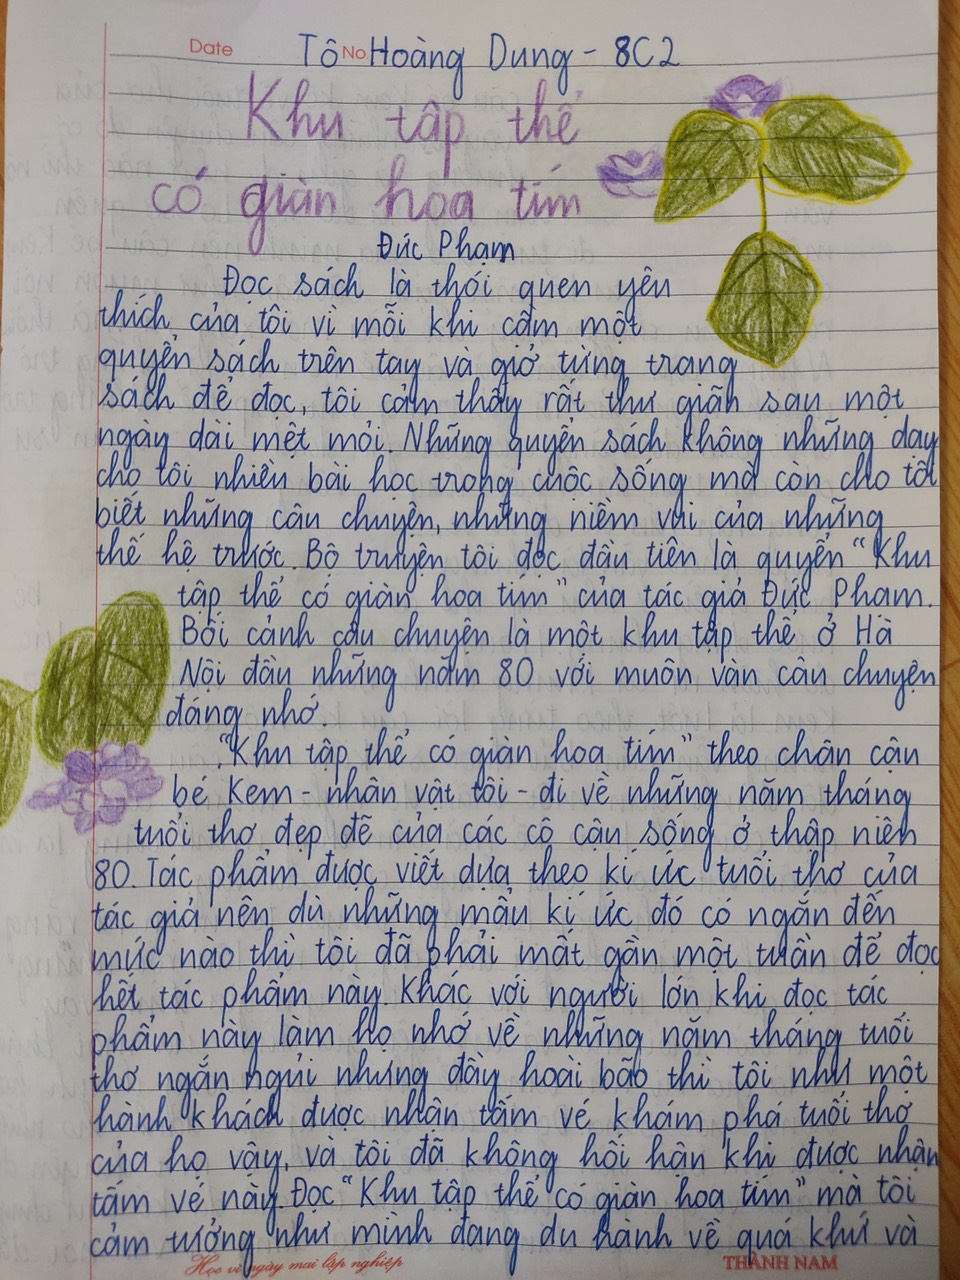 Date No
Tô Hoàng Dung - 8C2
Khu tập thể
có giàn hoa tím
Đức Phạm
Đọc sách là thói quen yêu
thích của tôi vì mỗi khi cầm một
quyển sách trên tay và giở từng trang
sách để đọc, tôi cảm thấy rất thư giãn sau một
ngày dài mệt mỏi. Những quyển sách không những dạy
cho tôi nhiều bài học trong cuộc sống mà còn cho tôi
biết những câu chuyện, những niềm vui của những
thế hệ trước. Bộ truyện tôi đọc đầu tiên là quyển "Khu
tập thể có giàn hoa tím" của tác giả Đức Phạm.
Bối cảnh câu chuyện là một khu tập thể ở Hà
Nội đầu những năm 80 với muôn vàn câu chuyện
đáng nhớ.
"Khu tập thể có giàn hoa tím" theo chân cậu
bé Kem - nhân vật tôi - đi về những năm tháng
tuổi thơ đẹp đẽ của các cô cậu sống ở thập niên
80. Tác phẩm được viết dựa theo kí ức tuổi thơ của
tác giả nên dù những mẩu kí ức đó có ngắn đến
mức nào thì tôi đã phải mất gần một tuần để đọc
hết tác phẩm này. Khác với người lớn khi đọc tác
phẩm này làm họ nhớ về những năm tháng tuổi
thơ ngắn ngủi nhưng đầy hoài bão thì tôi như một
hành khách được nhận tấm vé khám phá tuổi thơ
của họ vậy, và tôi đã không hối hận khi được nhận
tấm vé này. Đọc "Khu tập thể có giàn hoa tím" mà tôi
cảm tưởng như mình đang du hành về quá khứ và
Học vì ngày mai lập nghiệp
THÀNH NAM